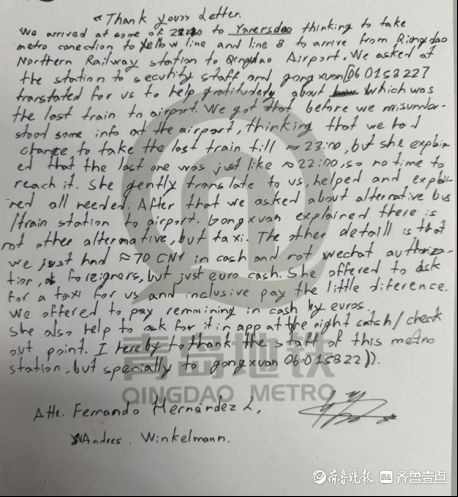 "Thank yours letter.
We arrived at some of 22:00 to thinking to take
metro conection to Yellow line and line 8 to arrive from Qiongdao
Northern Railway station to Qingdao Airport. We asked at
the station to security staff, and gongxuan [06015322]
translated for us to help gratitudely about which was
the last train to airport. We got that before we misunder-
stood some info at the airport, thinking that we had
chance to take the last train till ≈ 23:00, but she explain-
ed that the last one was just like ≈ 22:00, so no time to
reach it. She gently translate to us, helped and explai-
ned all needed. After that we asked about alternative bus
/train station to airport. Gongxuan explained there is
not other alternative, but taxi. The other detaill is that
we just had ≈70 CNY in cash and not wechat
tion, foreigners, but just euro cash. She offered to ask
for a taxi for us and inclusive pay the little diference.
We offered to pay remaining in cash by euros.
She also help to ask for it in app at the right catch/check
out point. I hereby to thank the staff of this metro
station, but specially to gongxuan 06015322)).
青岛地铁
QINGDAO METRO
Atte. Fernando Hernández L.
Andres. Winkelmann.
齐鲁晚报 齐鲁壹点